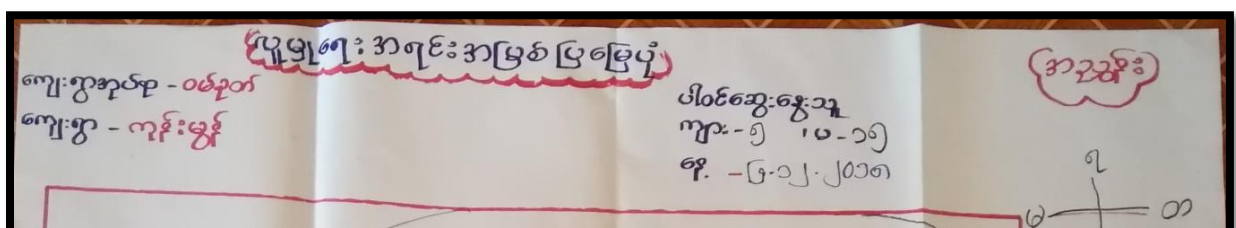 လူမှုရေး အရင်းအမြစ် ပြမြေပုံ
အညွှန်း
ကျေးရွာအုပ်စု - ဝမ်နွတ်
ကျေးရွာ - ကုန်းမွန်
ပါဝင်ဆွေးနွေးသူ
ကျား - ၅ ၊ မ - ၁၅
နေ့ - ၄.၁၂.၂၀၁၈
ရ
မ တ